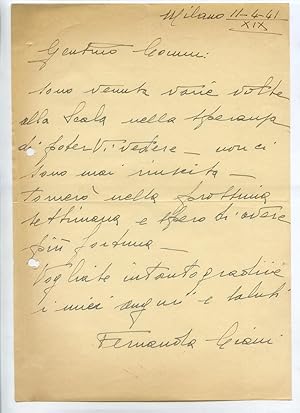 Milano 11-4-41
XIX
Gentmo Comm:
sono venuta varie volte
alla Scala nella speranza
di poterVi vedere - non ci
sono mai riuscita -
tornerò nella prossima
settimana e spero di avere
più fortuna -
Vogliate intanto gradire
i miei auguri e saluti
Fernanda Ciani